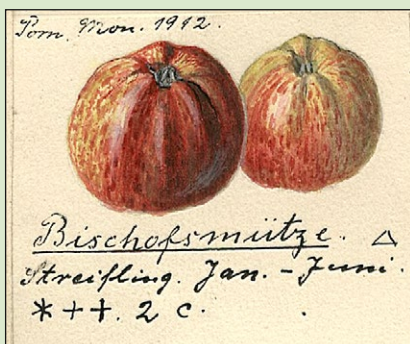 Pom. Mon. 1912.
Bischofsmütze. △
Streifling. Jan. - Juni.
*++. 2 c.